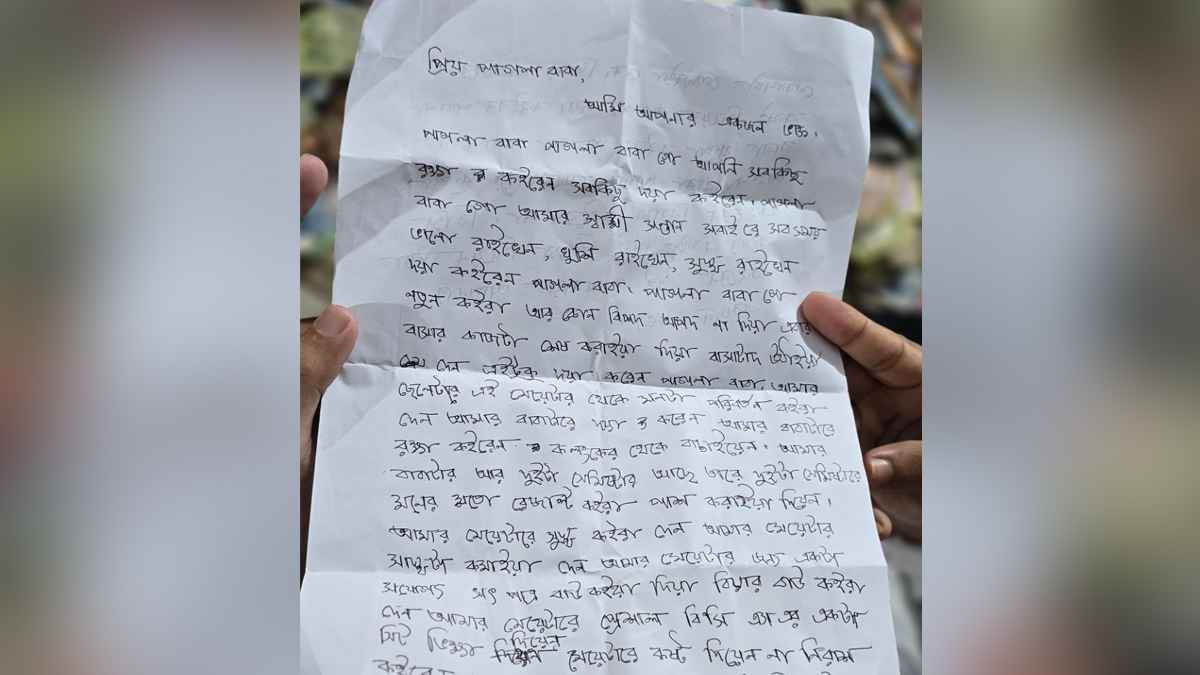 প্রিয় পাগলা বাবা,
আমি আপনার একজন ভক্ত।
পাগলা বাবা পাগলা বাবা গো আপনি সবকিছু
রক্ষা কইরেন সবকিছু দয়া কইরেন। পাগলা
বাবা গো আমার স্বামী সন্তান সবাইরে সবসময়
ভালো রাইখেন, খুশি রাইখেন, সুস্থ রাইখেন
দয়া কইরেন পাগলা বাবা। পাগলা বাবা গো
নতুন কইরা আর কোন বিপদ আপদ না দিয়া এবার
বাসার কাজটা শেষ করাইয়া দিয়া বাসাটাদ উঠাইয়া
দেন এইটুকু দয়া করেন পাগলা বাবা আমার
ছেলেটার এই মেয়েটার থেকে মনটা পরিবর্তন কইরা
দেন আমার বাবাটারে দয়া করেন আমার বাবাটারে
রক্ষা কইরেন কলংকের থেকে বাচাইয়েন। আমার
বাবাটার আর দুইটা সেমিষ্টার আছে তারে দুইটা সেমিষ্টারে
মনের মতো রেজাল্ট কইরা পাশ করাইয়া দিয়েন।
আমার মেয়েটারে সুস্থ কইরা দেন আমার মেয়েটার
কমাইয়া দেন আমার মেয়েটার জন্য একটা
সৎ পাত্র বাউ কইরা দিয়া বিয়ার বাউ কইরা
দেন আমার মেয়েটারে স্পেশাল বিসি এস এর একটা
সিট ভিক্ষা দিয়েন মেয়েটারে কষ্ট দিয়েন না নিরাশ
কইরেন